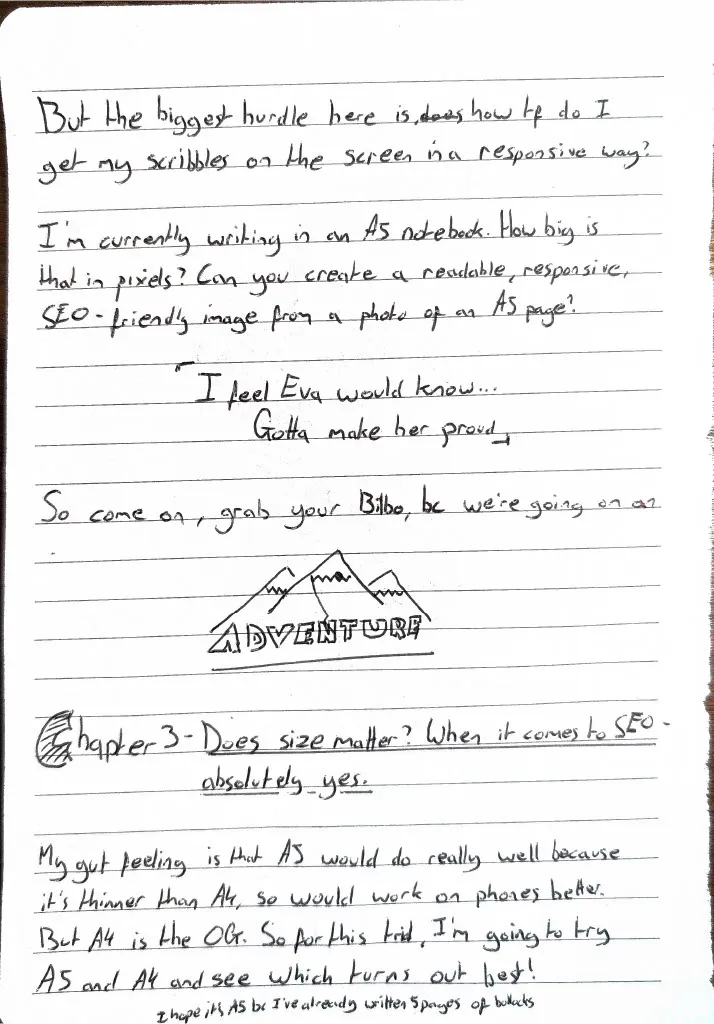 But the biggest hurdle here is, does how tf do I
get my scribbles on the screen in a responsive way?
I'm currently writing in an A5 notebook. How big is
that in pixels? Can you create a readable, responsive,
SEO-friendly image from a photo of an A5 page?
I feel Eva would know...
Gotta make her proud
So come on, grab your Bilbo, bc we're going on an
ADVENTURE
Chapter 3 - Does size matter? When it comes to SEO -
absolutely yes.
My gut feeling is that A5 would do really well because
it's thinner than A4, so would work on phones better.
But A4 is the OG. So for this trial, I'm going to try
A5 and A4 and see which turns out best!
I hope it's A5 bc I've already written 5 pages of bollocks